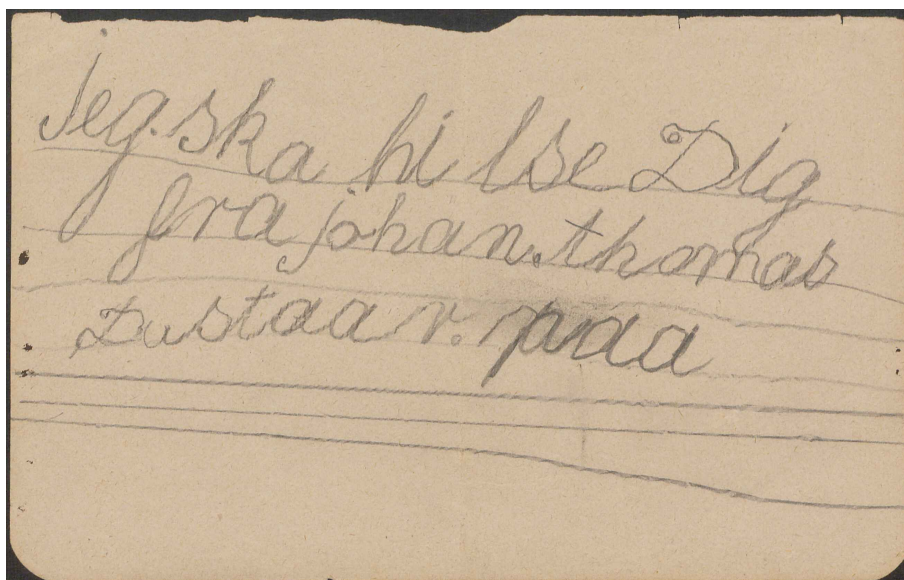 jeg. ska hi lse Dig
fra johan. thomas
Du staa r. paa